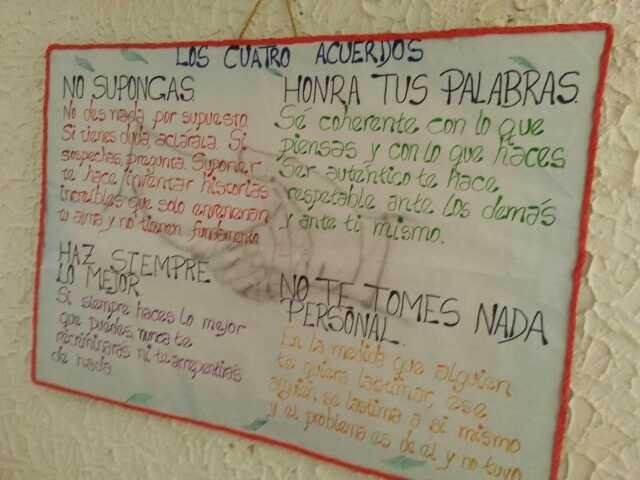 LOS CUATRO ACUERDOS
NO SUPONGAS
No des nada por supuesto
Si tienes duda, aclárala. Si
sospechas, pregunta. Suponer
te hace inventar historias
increíbles que solo envenenan
tu alma y no tienen fundamento
HONRA TUS PALABRAS.
Sé coherente con lo que
piensas y con lo que haces
Ser auténtico te hace
respetable ante los demás
y ante ti mismo.
HAZ SIEMPRE
LO MEJOR
Si siempre haces lo mejor
que puedes, nunca te
recriminarás ni te arrepentirás
de nada.
NO TE TOMES NADA
PERSONAL.
En la medida que alguien
te quiera lastimar, ese
alguien se lastima a si mismo
y el problema es de él y no tuyo